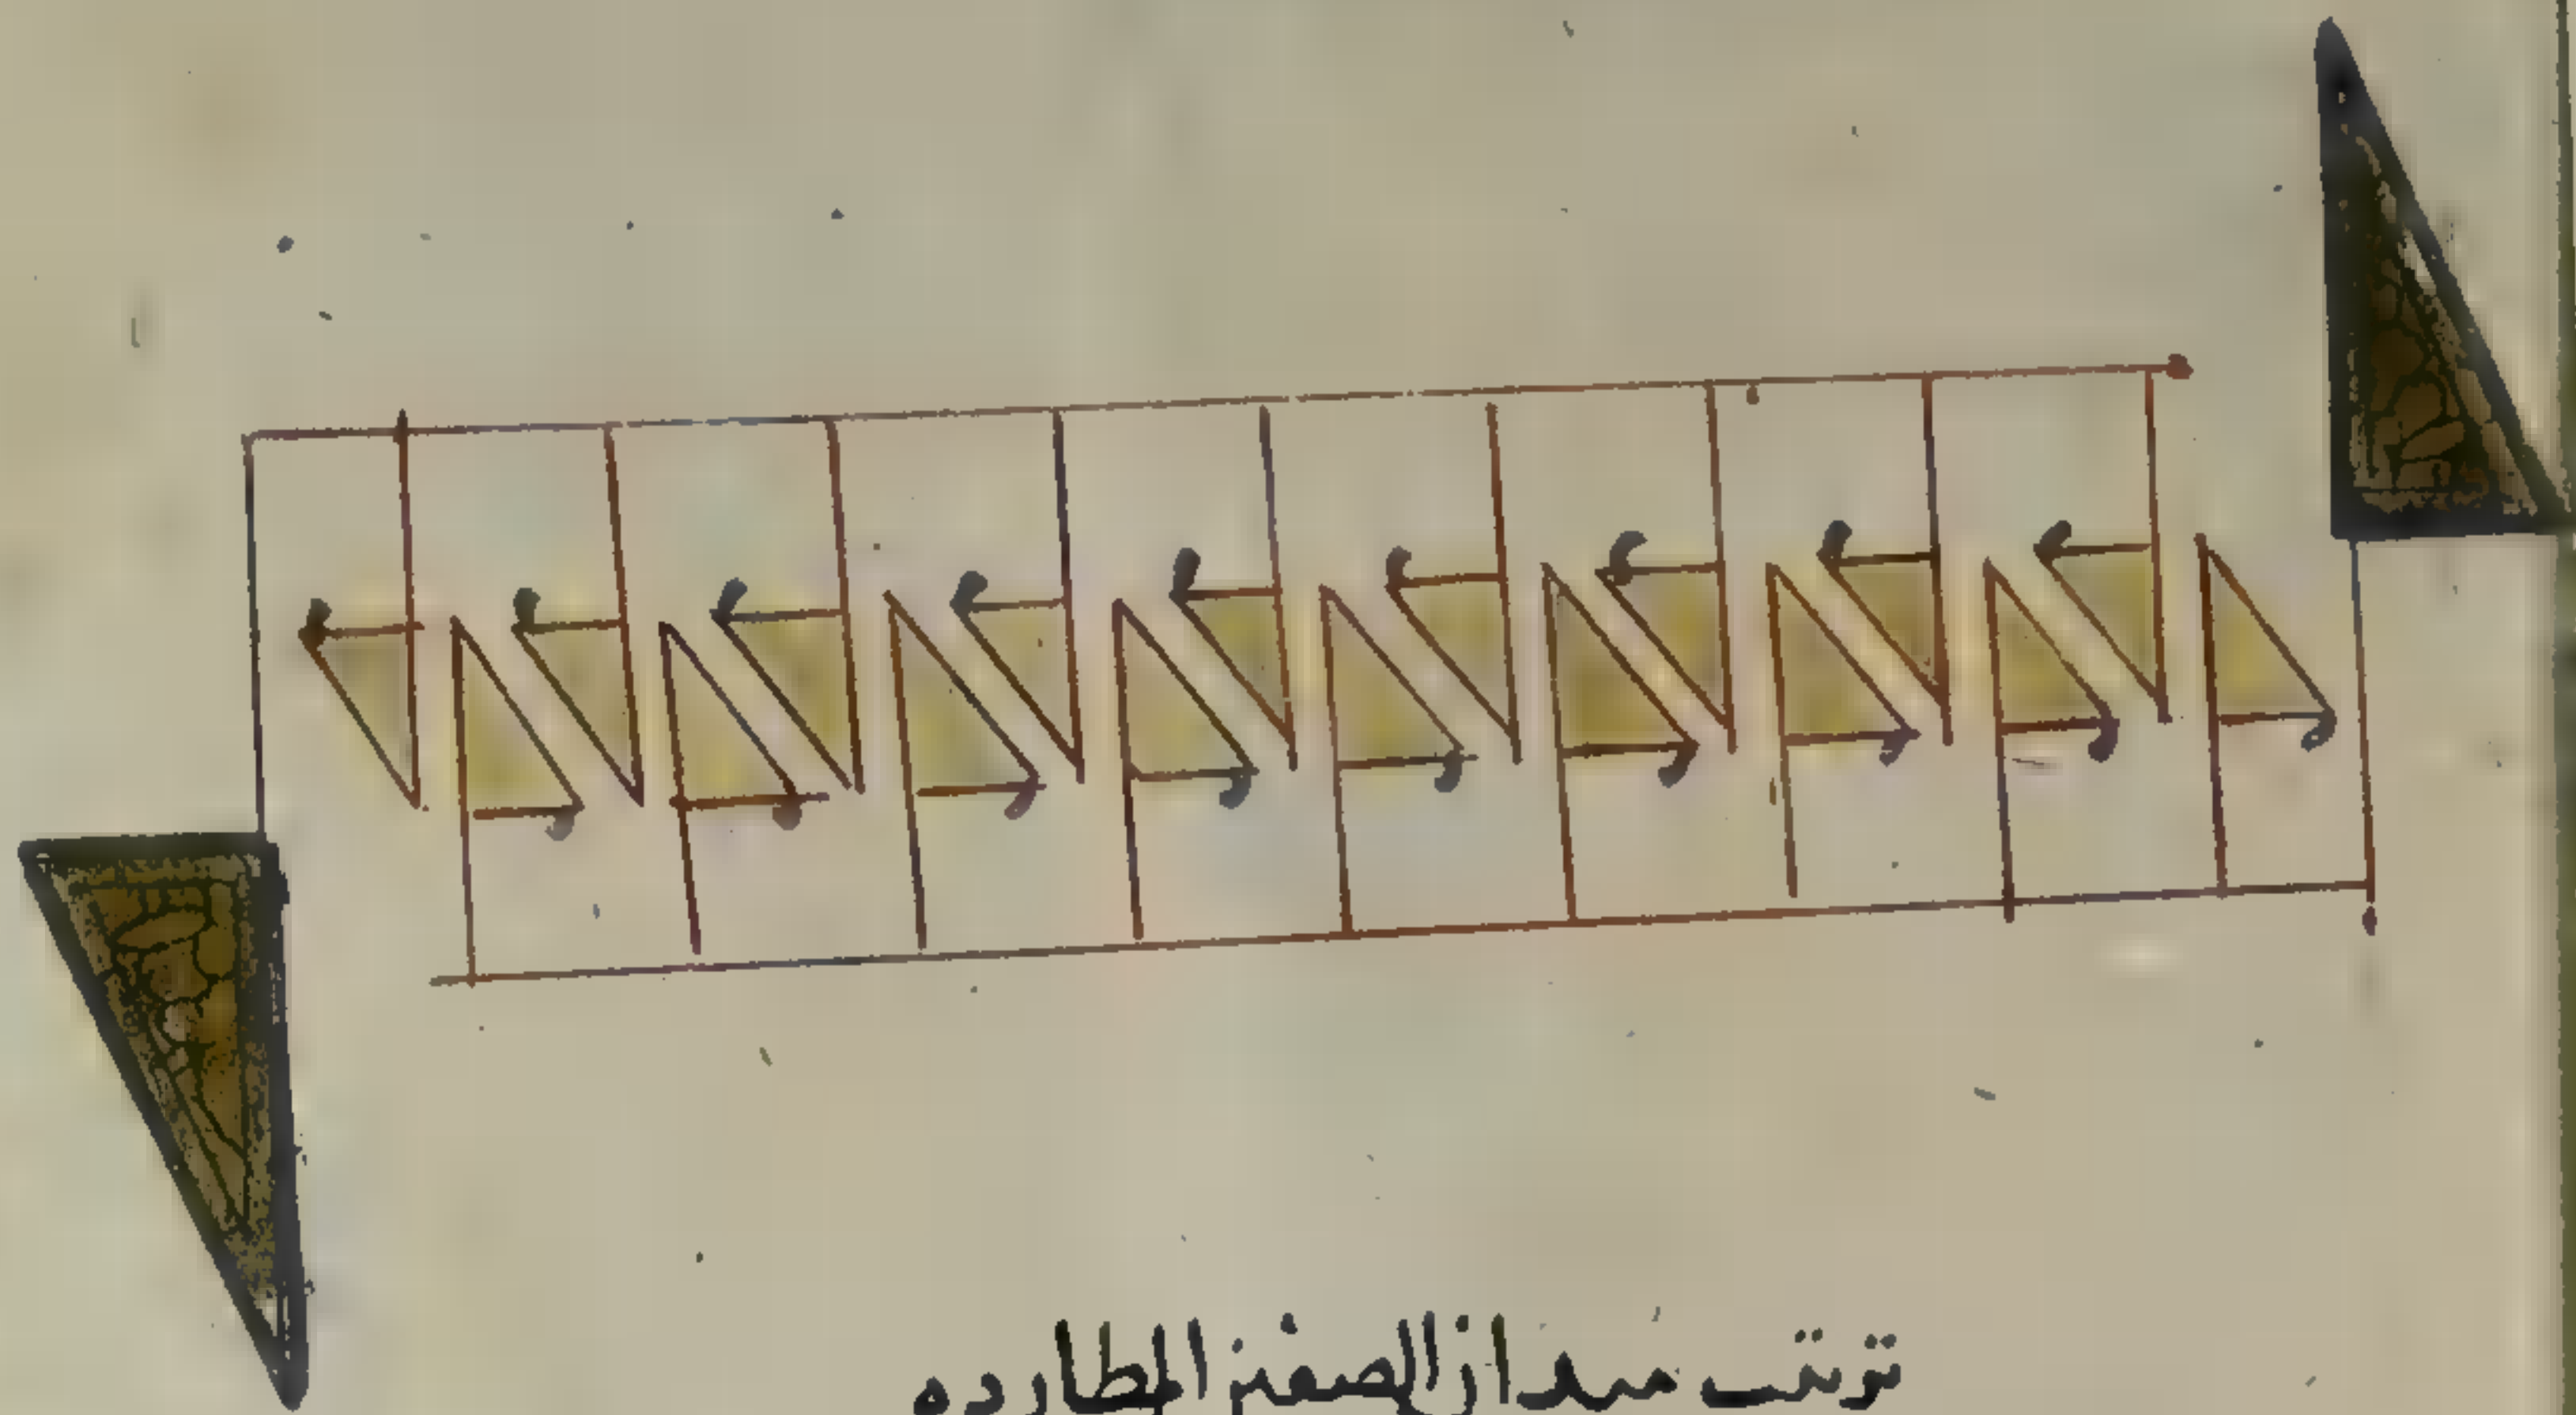 ترتيب ميدان الصفين المطارده